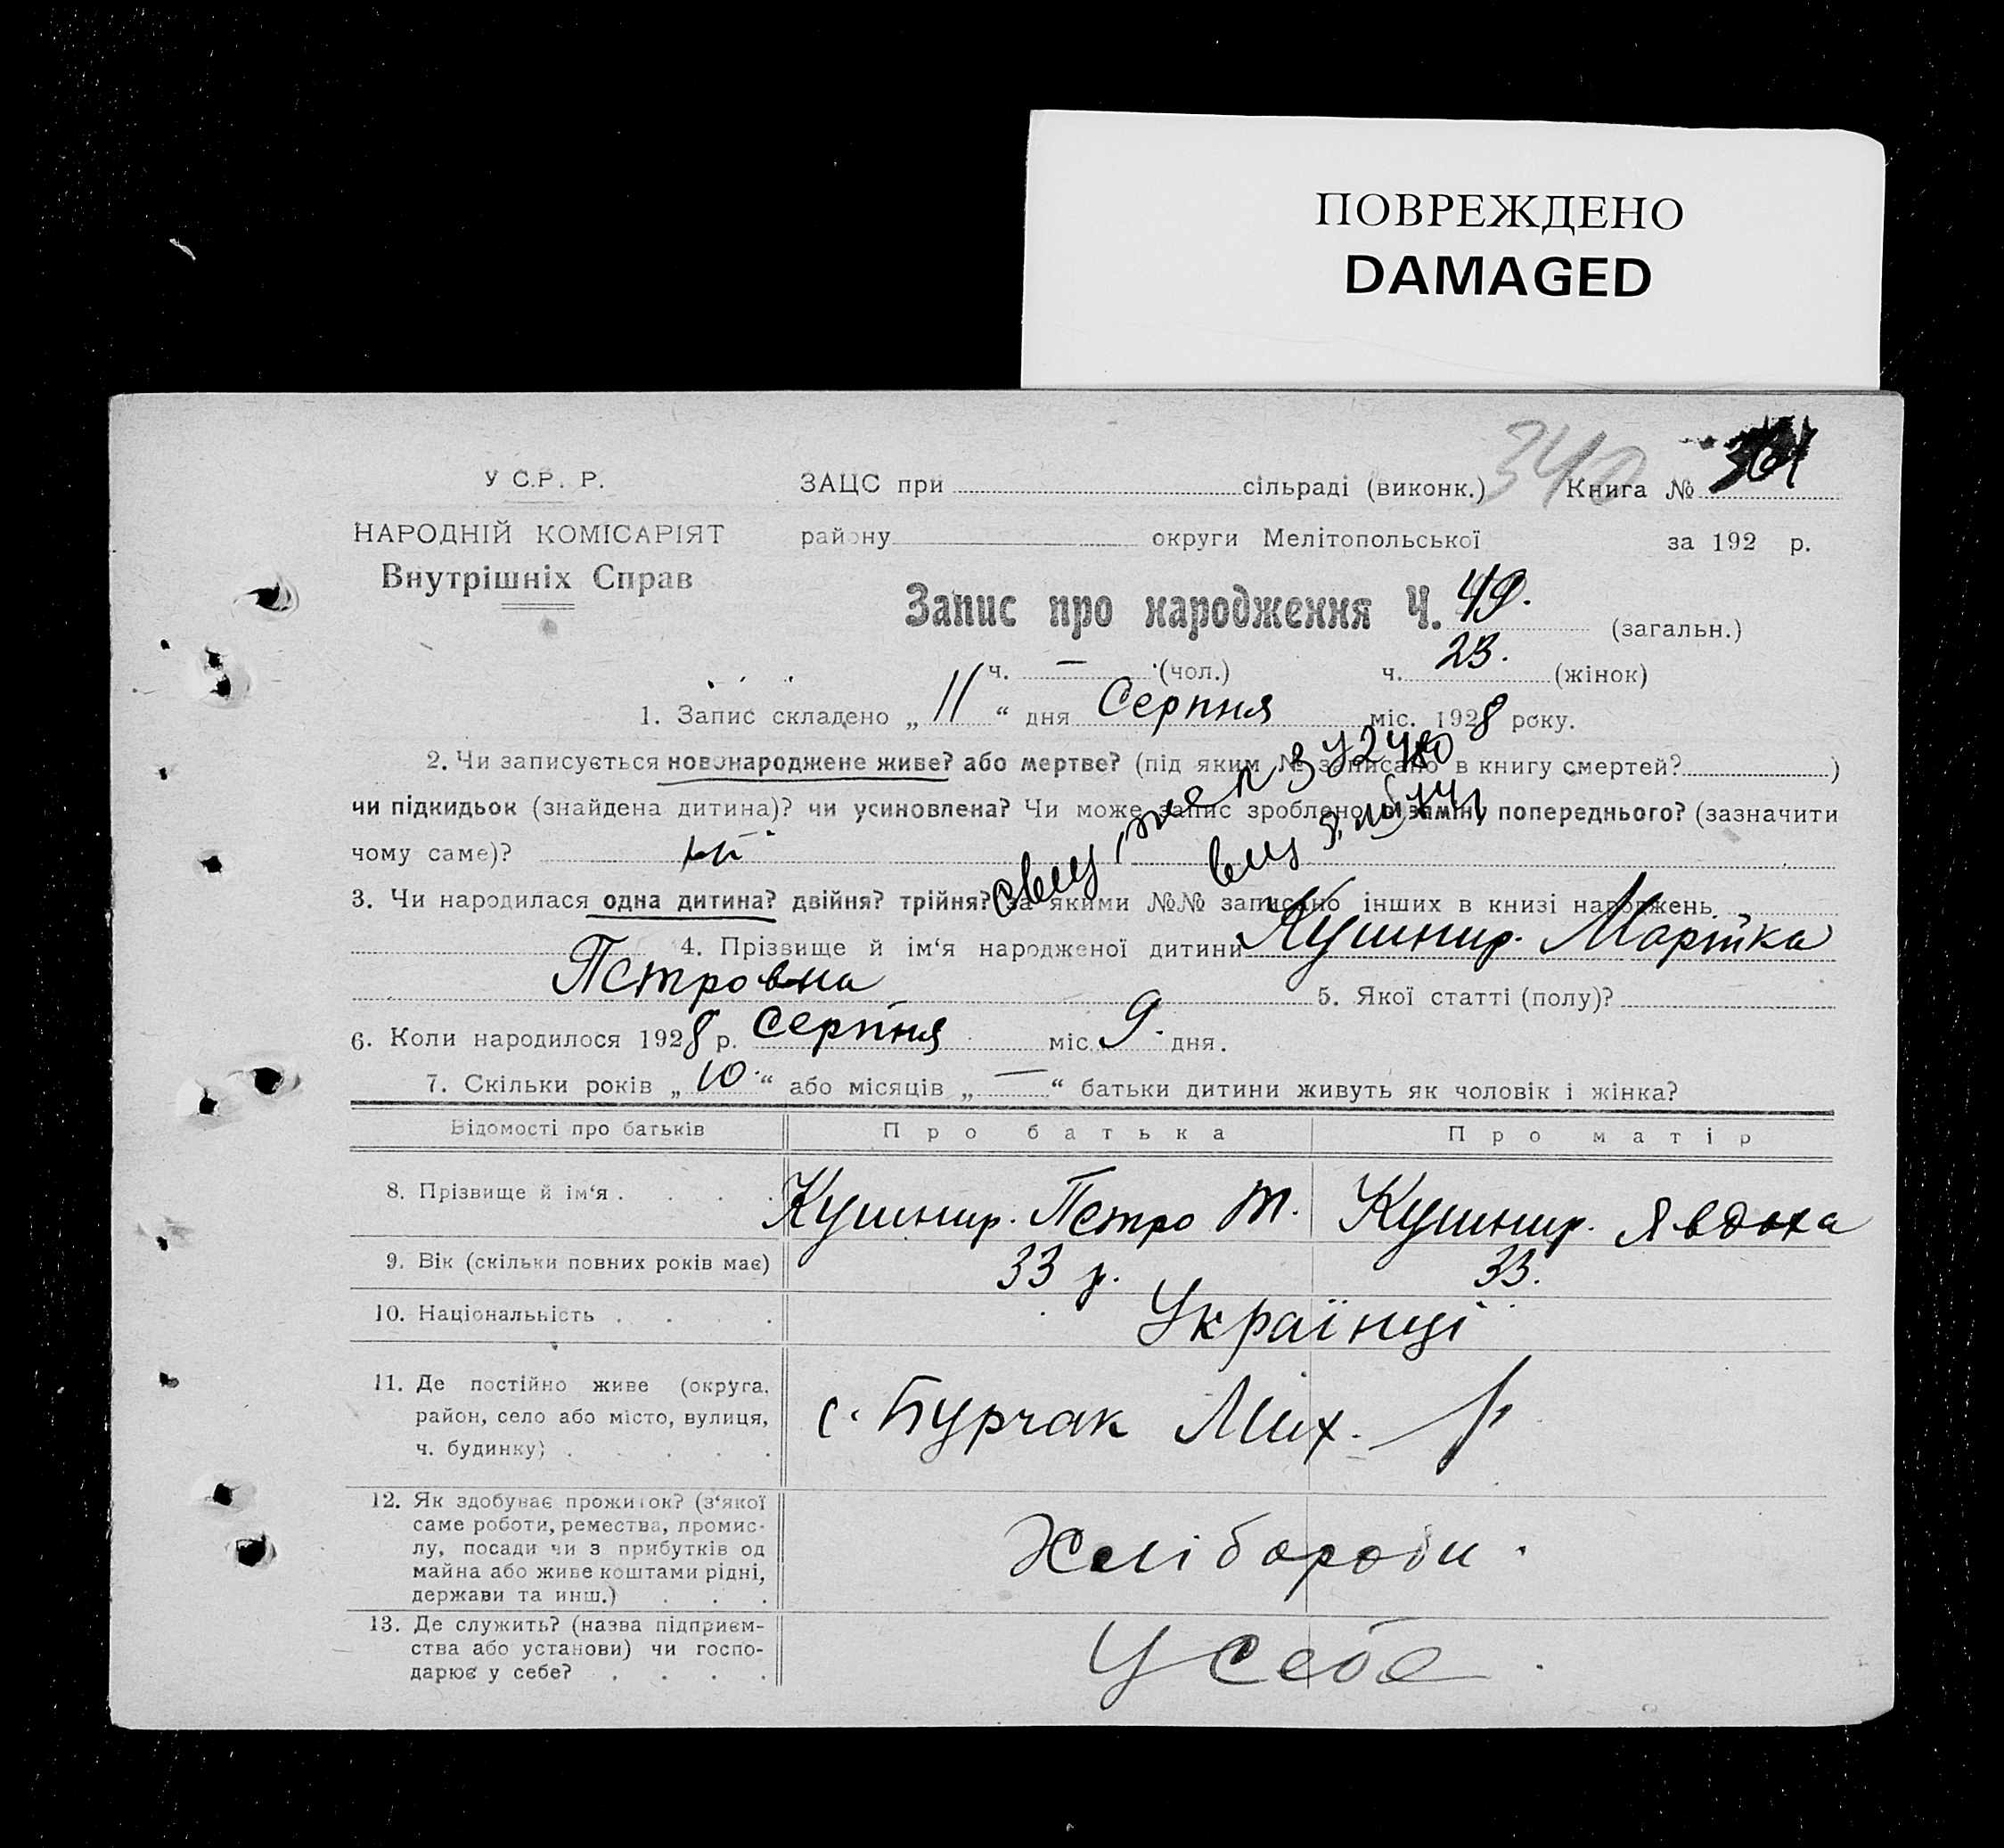 ПОВРЕЖДЕНО
DAMAGED
У С.Р. Р.
НАРОДНІЙ КОМІСАРІЯТ
Внутрішніх Справ
ЗАЦС при сільраді (виконк.) 340 Книга №
району округи Мелітопольської за 192 р.
Запис про народження Ч. 49. (загальн.)
ч. — (чол.) ч. 23. (жінок)
1. Запис складено „ 11 “ дня Серпня міс. 1928 року.
2. Чи записується новонароджене живе? або мертве? (під яким № записано в книгу смертей? )
чи підкидьок (знайдена дитина)? чи усиновлена? Чи може запис зроблено взаміну попереднього? (зазначити
чому саме)?
3. Чи народилася одна дитина? двійня? трійня? за якими №№ записано інших в книзі народжень
4. Прізвище й ім‘я народженої дитини Кушнир. Марійка
Петровна 5. Якої статті (полу)?
6. Коли народилося 1928 р. Серпня міс 9. дня.
7. Скільки років „ 10. “ або місяців „ — “ батьки дитини живуть як чоловік і жінка?
Відомості про батьків Про батька Про матір
8. Прізвище й ім‘я . . . . Кушнир. Петро Т. Кушнир. Явдоха
9. Вік (скільки повних років має) 33 р. 33.
10. Національність . . . . Українці
11. Де постійно живе (округа,
район, село або місто, вулиця,
ч. будинку) . . . . .
с. Бурчак Мих. р.
12. Як здобуває прожиток? (з‘якої
саме роботи, ремества, промис-
лу, посади чи з прибутків од
майна або живе коштами рідні,
держави та инш.) . . .
Хлібороби.
13. Де служить? (назва підприєм-
ства або установи) чи госпо-
дарює у себе? . . . .
У себе.